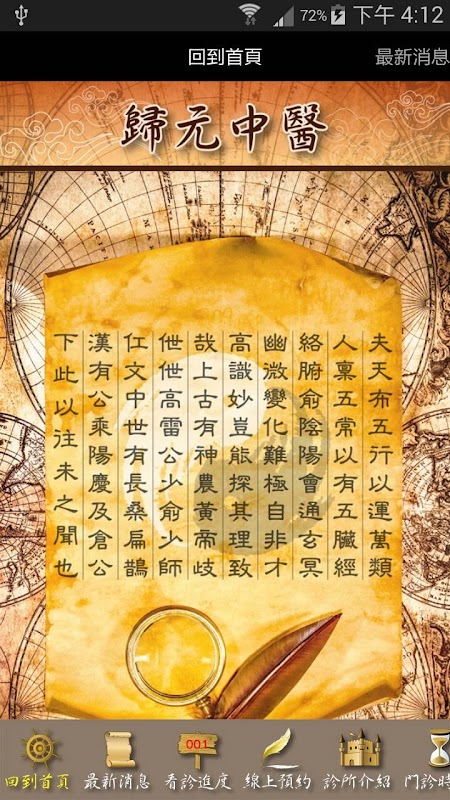 72%
下午 4:12
回到首頁
最新消息
歸元中醫
夫天布五行以運萬類
人稟五常以有五臟經
絡腑俞陰陽會通玄冥
幽微變化難極自非才
高識妙豈能探其理致
哉上古有神農黃帝歧
伯伯高雷公少俞少師
仁文中世有長桑扁鵲
漢有公乘陽慶及倉公
下此以注未之聞也
001
回到首頁
最新消息
看診進度
線上預約
診所介紹
門診時